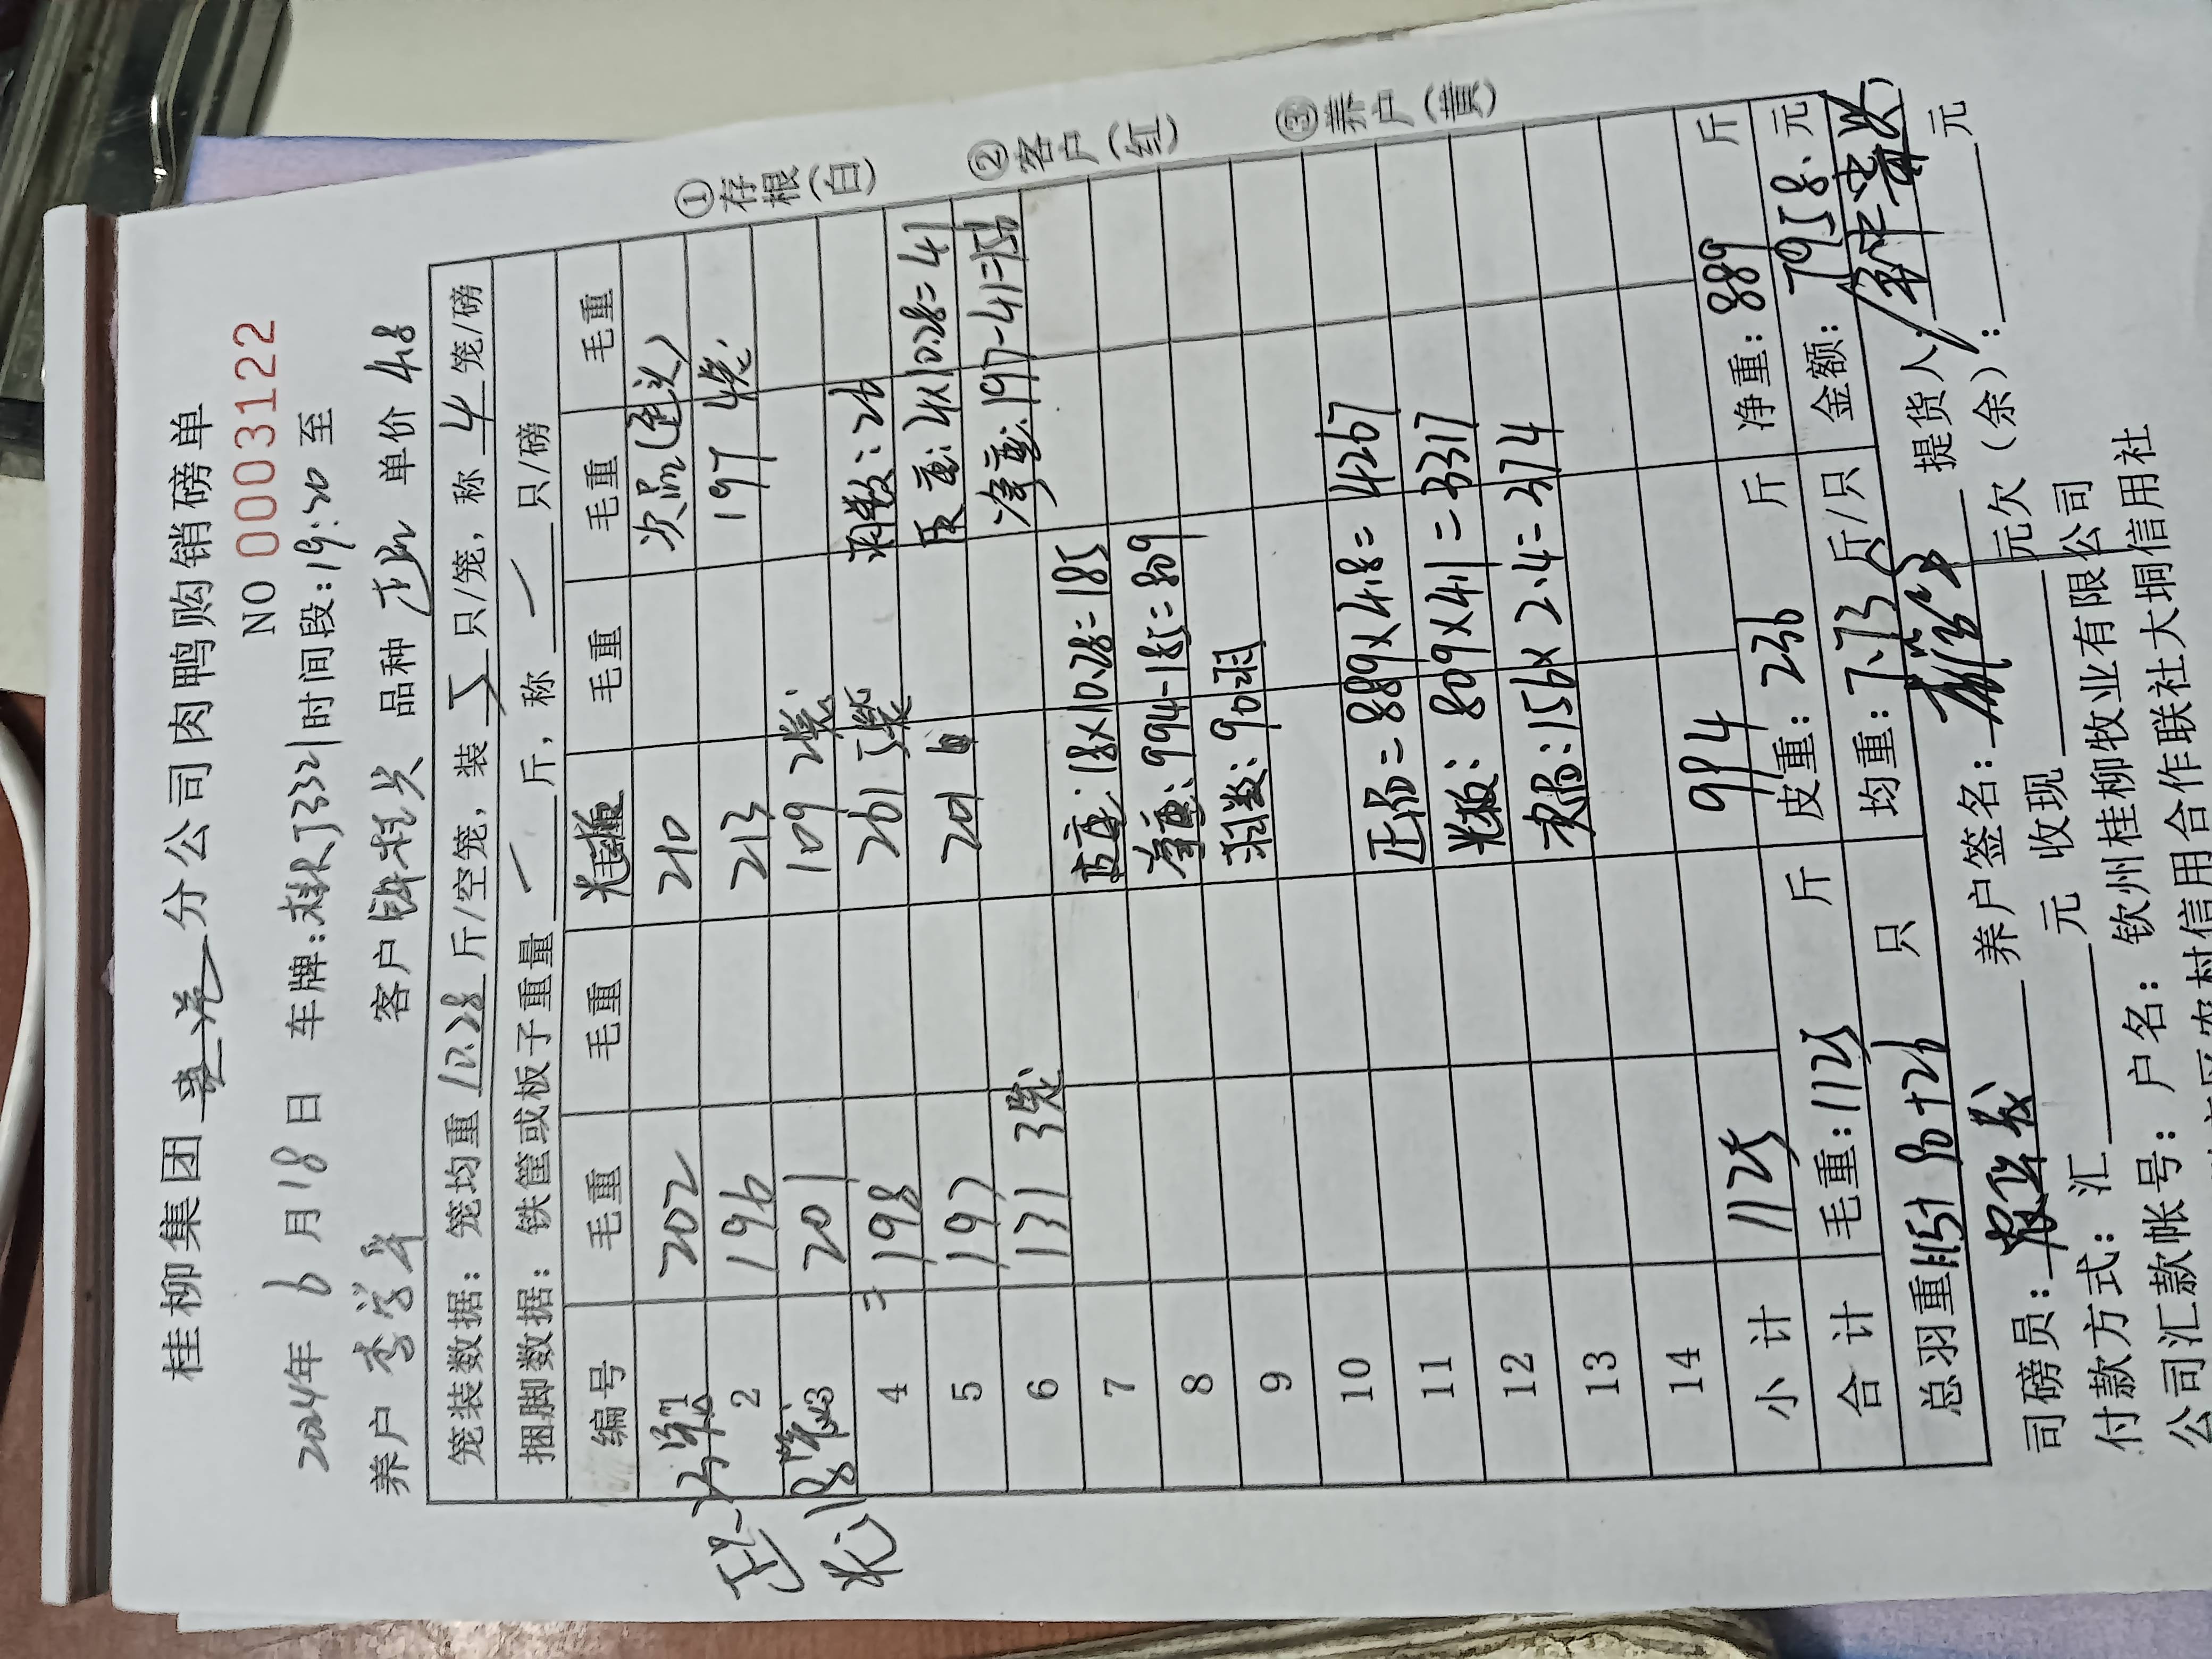 桂柳集团 分公司肉鸭购销磅单
NO 0003122
2024年 6月18日 车牌:桂 J3321 时间段:19:20 至
养户 李 客户 品种 单价 4.8
笼装数据:笼均重 10.28 斤/空笼,装 5 只/笼,称 4 笼/磅
捆脚数据:铁筐或板子重量 一 斤,称 一 只/磅
编号 毛重 毛重 光板 毛重 毛重 毛重
1 202 210 次品
2 196 213 197 4笼
3 201 109 2笼
4 198 261 5笼 羽数:26
5 197 201 皮重:4×10.28=41
6 131 3笼 净重:197-41=156
7 皮重:18×10.28=185
8 净重:994-185=809
9 羽数:90羽
10 正品=889×4.8=4267
11 光板:809×4.1=3317
12 次品:156×2.4=374
13
14
小计 1125 994
净重:889 斤
合计 毛重:1125 斤 皮重:236 斤 金额:7958.元
总羽重 115+90+26 只 均重:7.73 斤/只
司磅员: 养户签名: 提货人:
付款方式:汇 元 收现 元欠(余): 元
公司汇款帐号:户名:钦州桂柳牧业有限公司
农村信用合作联社大垌信用社
①存根(白)
②客户(红)
③养户(黄)